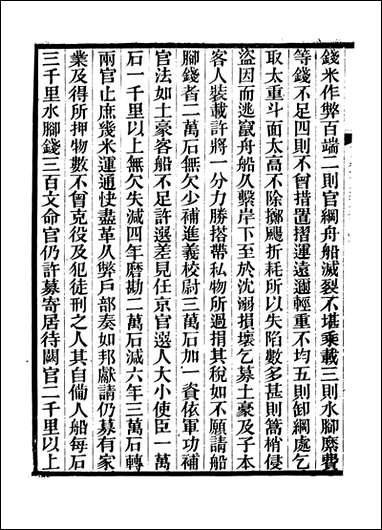 錢米作弊百端二則官綱舟船滅裂不堪乘載三則水腳縻費
等錢不足四則不曾措置摺運遠邇輕重不均五則卸綱處乞
取太重斗面太高不除擲颺折耗所以失陷數多甚則篙梢侵
盜因而逃竄舟船久繫岸下至於沈溺損壞乞募土豪及子本
客人裝載許將一分力勝搭帶私物所過捐其稅如不願請船
腳錢者二萬石無欠少補進義校尉三萬石加一資依軍功補
官法如土豪客船不足許選差見任京官選人大小使臣一萬
石一千里以上無欠失減四年磨勘二萬石減六年三萬石轉
兩官止庶幾米運通快盡革久弊戶部奏如邦獻請仍募有家
業及得所押物數不曾克役及犯徒刑之人其自僱人船每石
三千里水腳錢三百文命官仍許募寄居待闕官二千里以上